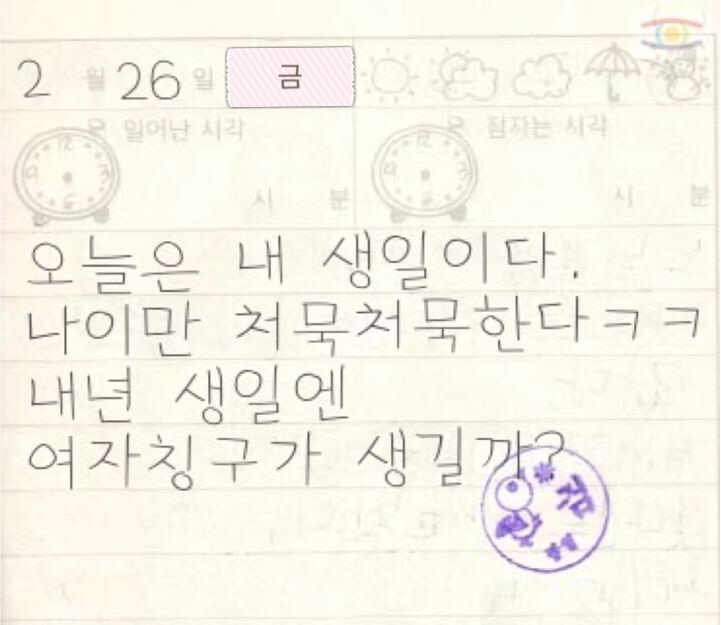 2 월 26 일 금
일어난 시각 잠자는 시각
12 3 6 9 시 분 12 3 6 9 시 분
오늘은 내 생일이다.
나이만 처묵처묵한다ㅋㅋ
내년 생일엔
여자칭구가 생길까?